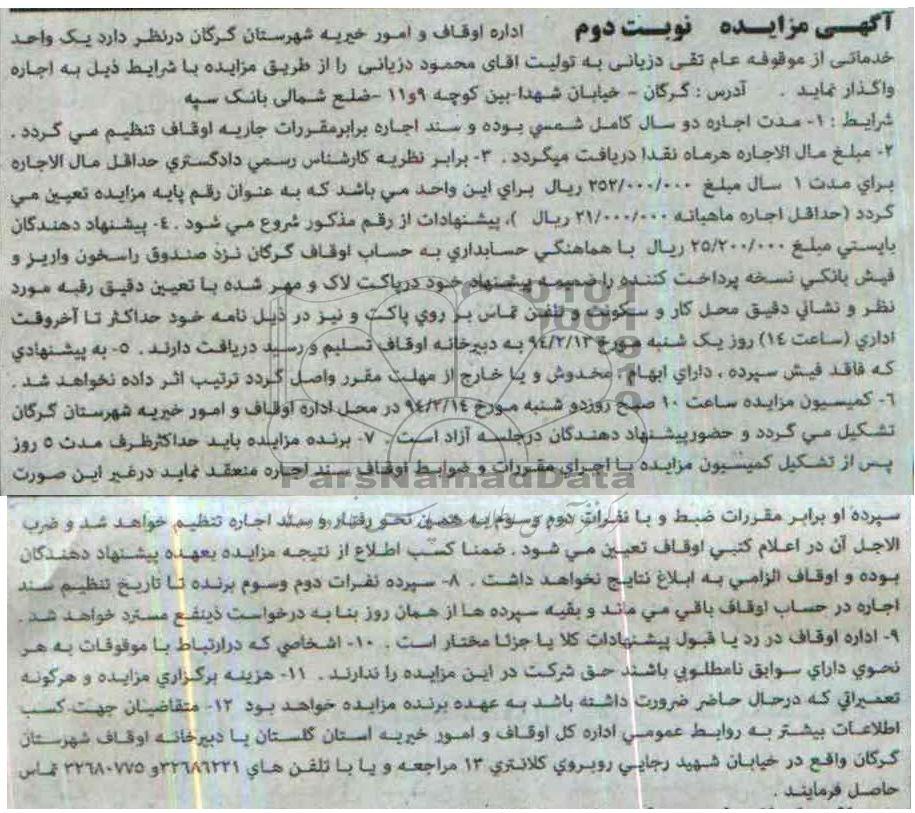 آگهی مزایده نوبت دوم اداره اوقاف و امور خیریه شهرستان گرگان درنظر دارد یک واحد
خدماتی از موقوفه عام تقی دزیانی به تولیت اقای محمود دزیانی را از طریق مزایده با شرایط ذیل به اجاره
واگذار نماید . آدرس : گرگان - خیابان شهدا-بین کوچه ۹و۱۱ -ضلع شمالی بانک سپه
شرایط : ۱- مدت اجاره دو سال کامل شمسي بوده و سند اجاره برابرمقررات جاریه اوقاف تنظیم مي گردد .
۲- مبلغ مال الاجاره هرماه نقدا دریافت میگردد . ۳- برابر نظریه کارشناس رسمي دادگستري حداقل مال الاجاره
براي مدت ۱ سال مبلغ ۲۵۲/۰۰۰/۰۰۰ ریال براي این واحد مي باشد که به عنوان رقم پایه مزایده تعیین مي
گردد (حداقل اجاره ماهیانه ۲۱/۰۰۰/۰۰۰ ریال ). پیشنهادات از رقم مذکور شروع مي شود . ٤- پیشنهاد دهندگان
بایستي مبلغ ۲۵/۲۰۰/۰۰۰ ریال با هماهنگي حسابداري به حساب اوقاف گرگان نزد صندوق راسخون واریز و
فیش بانکي نسخه پرداخت کننده را ضمیمه پیشنهاد خود درپاکت لاک و مهر شده با تعیین دقیق رقبه مورد
نظر و نشاني دقیق محل کار و سکونت و تلفن تماس بر روي پاکت و نیز در ذیل نامه خود حداکثر تا آخروقت
اداري (ساعت ۱٤) روز یک شنبه مورخ ۹٤/۲/۱۳ به دبیرخانه اوقاف تسلیم و رسید دریافت دارند . ۵- به پیشنهادي
که فاقد فیش سپرده ، داراي ابهام ، مخدوش و یا خارج از مهلت مقرر واصل گردد ترتیب اثر داده نخواهد شد .
٦- کمیسیون مزایده ساعت ۱۰ صبح روزدو شنبه مورخ ۹٤/۲/۱٤ در محل اداره اوقاف و امور خیریه شهرستان گرگان
تشکیل مي گردد و حضورپیشنهاد دهندگان درجلسه آزاد است . ۷- برنده مزایده باید حداکثرظرف مدت ۵ روز
پس از تشکیل کمیسیون مزایده با اجراي مقررات و ضوابط اوقاف سند اجاره منعقد نماید درغیر این صورت
ParsNamadData
سپرده او برابر مقررات ضبط و با نفرات دوم وسوم به همین نحو رفتار و سند اجاره تنظیم خواهد شد و ضرب
الاجل آن در اعلام کتبي اوقاف تعیین مي شود . ضمنا کسب اطلاع از نتیجه مزایده بعهده پیشنهاد دهندگان
بوده و اوقاف الزامي به ابلاغ نتایج نخواهد داشت . ۸- سپرده نفرات دوم وسوم برنده تا تاریخ تنظیم سند
اجاره در حساب اوقاف باقي مي ماند و بقیه سپرده ها از همان روز بنا به درخواست ذینفع مسترد خواهد شد .
۹- اداره اوقاف در رد یا قبول پیشنهادات کلا یا جزئا مختار است . ۱۰- اشخاصي که درارتباط با موقوفات به هر
نحوي داراي سوابق نامطلوبي باشند حق شرکت در این مزایده را ندارند . ۱۱- هزینه برگزاري مزایده و هرگونه
تعمیراتي که درحال حاضر ضرورت داشته باشد به عهده برنده مزایده خواهد بود ۱۲- متقاضیان جهت کسب
اطلاعات بیشتر به روابط عمومي اداره کل اوقاف و امور خیریه استان گلستان یا دبیرخانه اوقاف شهرستان
گرگان واقع در خیابان شهید رجایي روبروي کلانتري ۱۳ مراجعه و یا با تلفن هاي ۳۲٦۸٦۲۲۱و ۳۲٦۸۰۷۷۵ تماس
حاصل فرمایند .